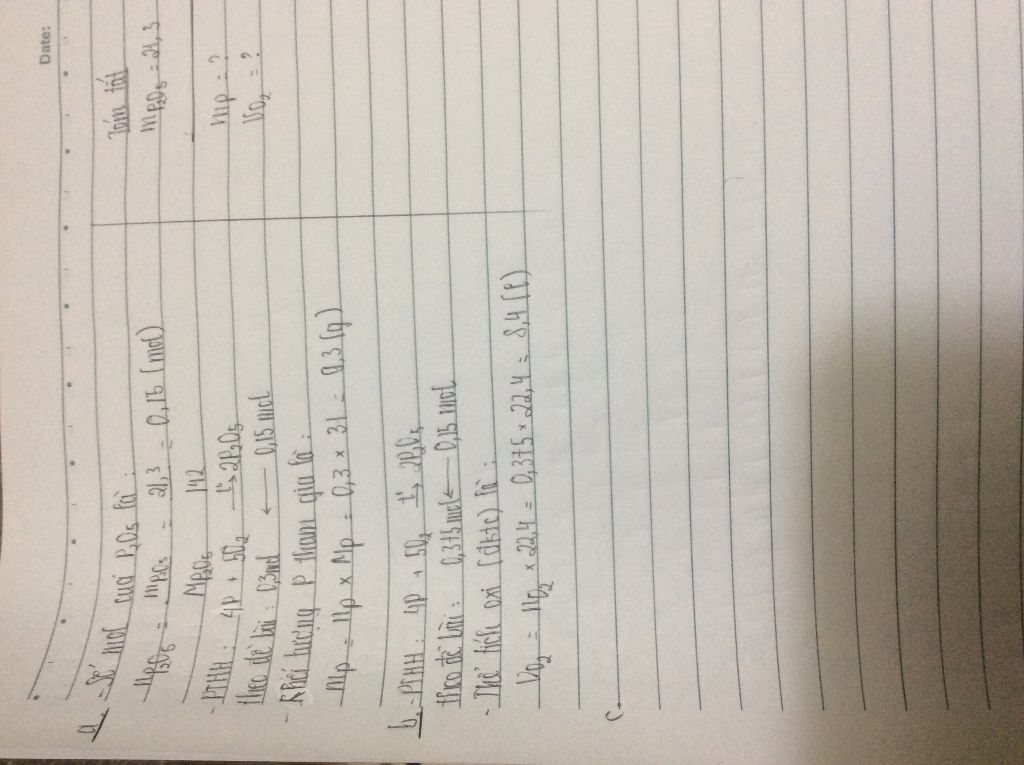 Date:
Tóm tắt
mP₂O₅ = 21,3
mP = ?
VO₂ = ?
a, - Số mol của P₂O₅ là :
nP₂O₅ = mP₂O₅ / MP₂O₅ = 21,3 / 142 = 0,15 (mol)
- PTHH : 4P + 5O₂ t°→ 2P₂O₅
theo đề bài : 0,3mol ← 0,15 mol
- Khối lượng P tham gia là :
mP = nP × MP = 0,3 × 31 = 9,3 (g)
b, - PTHH : 4P + 5O₂ t°→ 2P₂O₅
theo đề bài : 0,375 mol ← 0,15 mol
- Thể tích oxi (đktc) là :
VO₂ = nO₂ × 22,4 = 0,375 × 22,4 = 8,4 (l)
c.